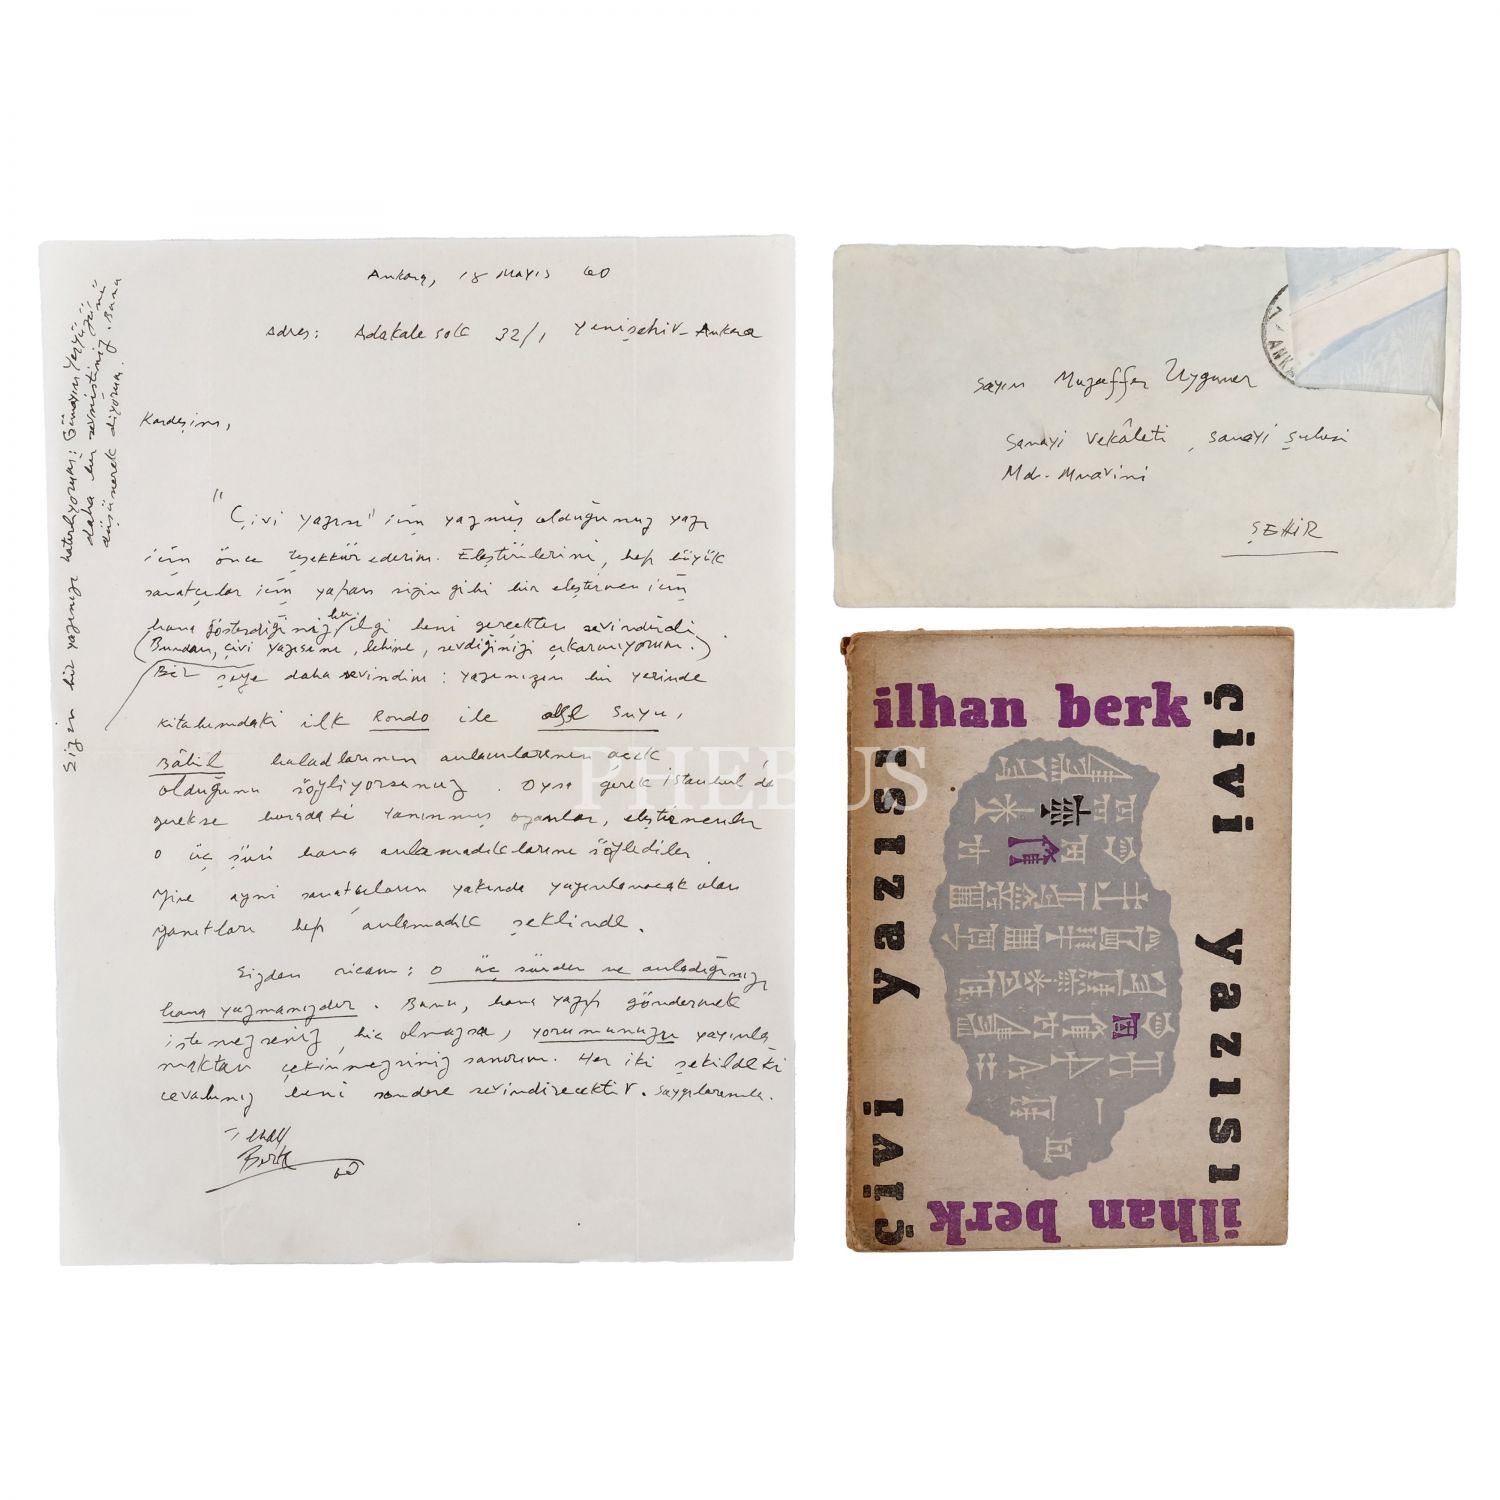 Ankara, 18 Mayıs 60
Adres: Adakale sok 32/1 Yenişehir-Ankara
Kardeşim,
"Çivi yazısı" için yazmış olduğunuz yazı
için önce teşekkür ederim. Eleştirilerini, hep büyük
sanatçılar için yapan sizin gibi bir eleştirmen için
bana gösterdiğiniz bu ilgi beni gerçekten sevindirdi.
(Bundan, çivi yazısını, lehine, sevdiğinizi çıkarmıyorum.)
Bir şeye daha sevindim: yazınızın bir yerinde
kitabımdaki ilk Rondo ile Suyu,
Bâbil baladlarının anlamlarının açık
olduğunu söylüyorsunuz. Oysa gerek İstanbul'da
gerekse buradaki tanınmış ozanlar, eleştirmenler
o üç şiiri bana anlamadıklarını söylediler.
Yine ayni sanatçıların yakında yayınlanacak olan
yanıtları hep anlamadık şeklinde.
Sizden ricam: o üç şiirden ne anladığınızı
bana yazmanızdır. Bunu, bana yazıp göndermek
istemezseniz, hiç olmazsa, yorumunuzu yayınla
maktan çekinmezsiniz sanırım. Her iki şekildeki
cevabınız beni sadece sevindirecektir. Saygılarımla.
İlhan
Berk
60
Sizin bir yazınızı hatırlıyorum: Günaydın Yeryüzü'nü
daha bir sevmiştiniz. Bunu
düşünerek diyorum.
7
ANK
Sayın Muzaffer Uyguner
Sanayi Vekâleti, sanayi şubesi
Md. Muavini
ŞEHİR
ilhan berk
çivi yazısı
çivi yazısı
ilhan berk
PHEBUS